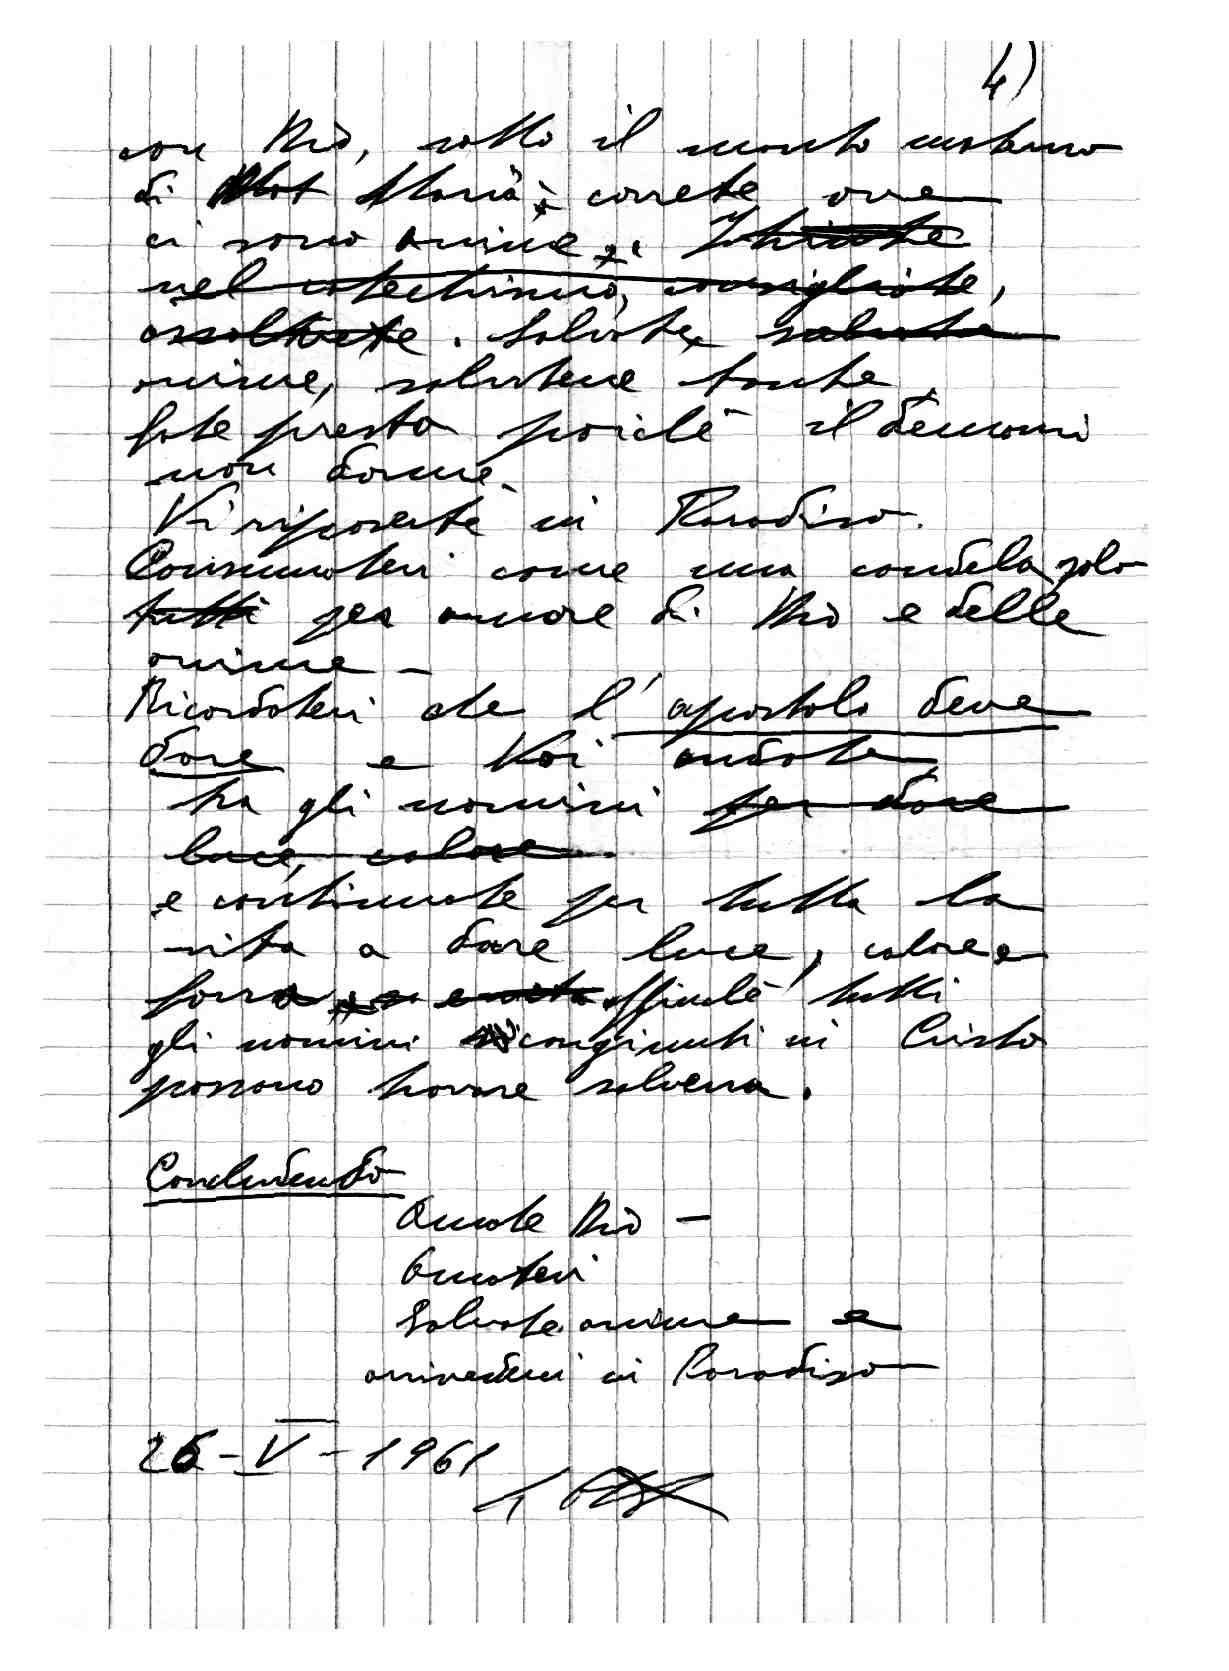 4)
con Dio, sotto il manto materno
di Maria; correte ove
ci sono anime. Istruite
nel catechismo, consigliate,
ascoltate. Salvate salvate
anime, salvatene tante.
Fate presto poichè il demonio
non dorme.
Vi riposerete in Paradiso.
Consumatevi come una candela solo
tutti per amore di Dio e delle
anime -
Ricordatevi che l'apostolo deve
dare e Voi andate
tra gli uomini per dare
luce, calore.
e continuate per tutta la
vita a dare luce, calore e
forza affinchè tutti
gli uomini congiunti in Cristo
possono trovare salvezza.
Concludendo
Amate Dio -
Amatevi
Salvate anime e
arrivederci in Paradiso
26-V-1961